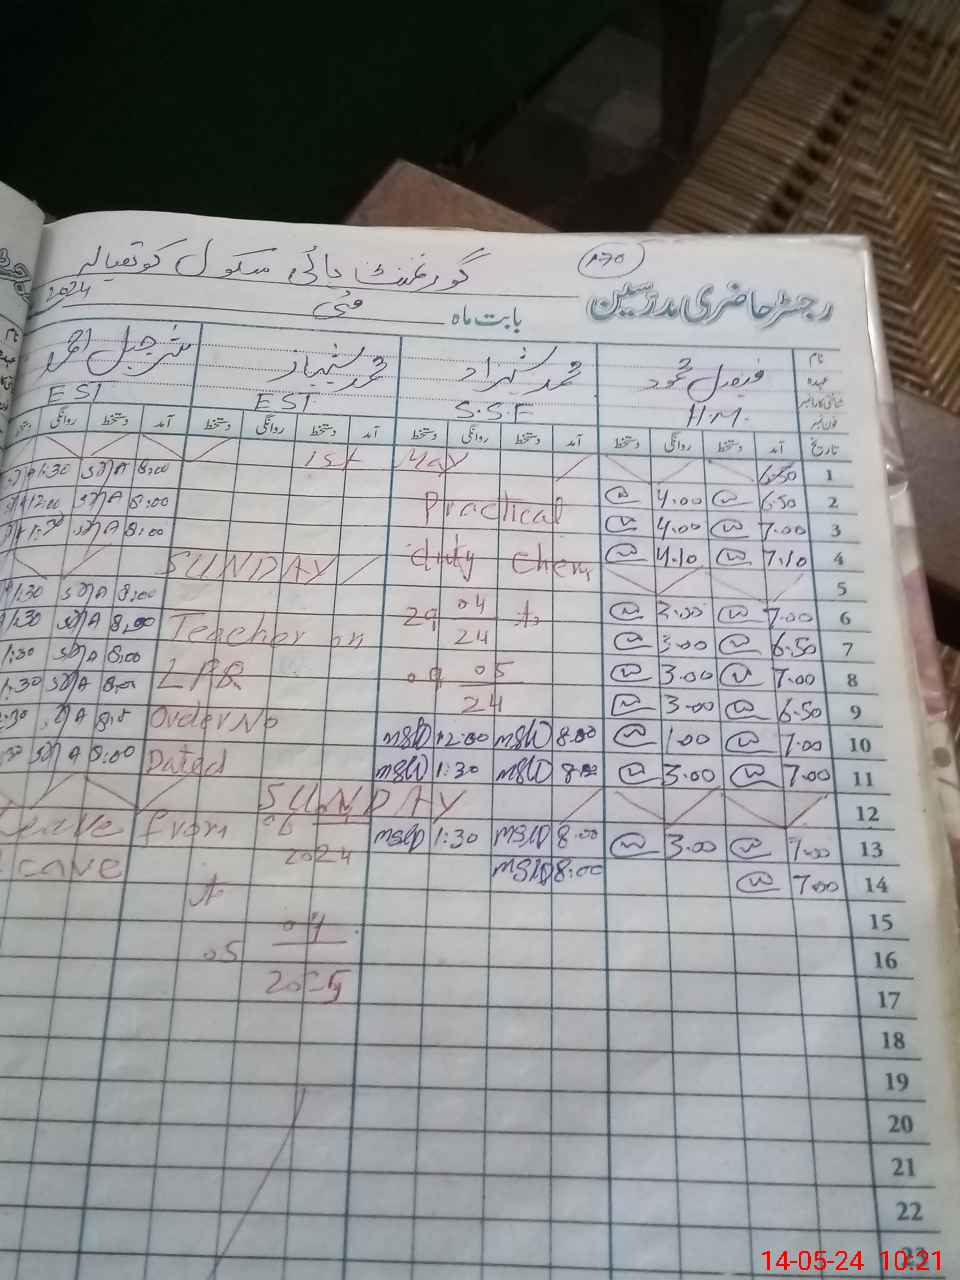 گورنمنٹ ہائی سکول کوتھیالہ
رجسٹر حاضری مدرسین
بابت ماہ مئی 2024
نام فیصل محمود محمد شہزاد محمد شہباز شرجیل احمد
عہدہ H.M. S.S.E EST EST
تاریخ آمد دستخط روانگی دستخط آمد دستخط روانگی دستخط آمد دستخط روانگی دستخط آمد دستخط روانگی
1 6.50 1st May
2 6.50 4.00 Practical 8.00 1:30
3 7.00 4.00 8:00 12:00
4 7.10 4.10 duty Chem 8:00 1:30
5 SUNDAY
6 7.00 2:00 29 04 to 8:00 1:30
7 6.50 3.00 24 Teacher on 8,00 1:30
8 7.00 3.00 09 05 LPR 8:00 1:30
9 6.50 3.00 24 1:30
10 7.00 1.00 8.00 MSHD 12:00 MSHD Order No
11 7.00 3.00 8.00 MSHD 1:30 MSHD Dated 8:00
12 SUNDAY
13 7.00 3.00 8.00 MSHD 1:30 MSHD Leave from 06
2024
14 7.00 8:00 MSHD Leave
to
15
16 05 04
17 2025
18
19
20
21
22
23
14-05-24 10:21